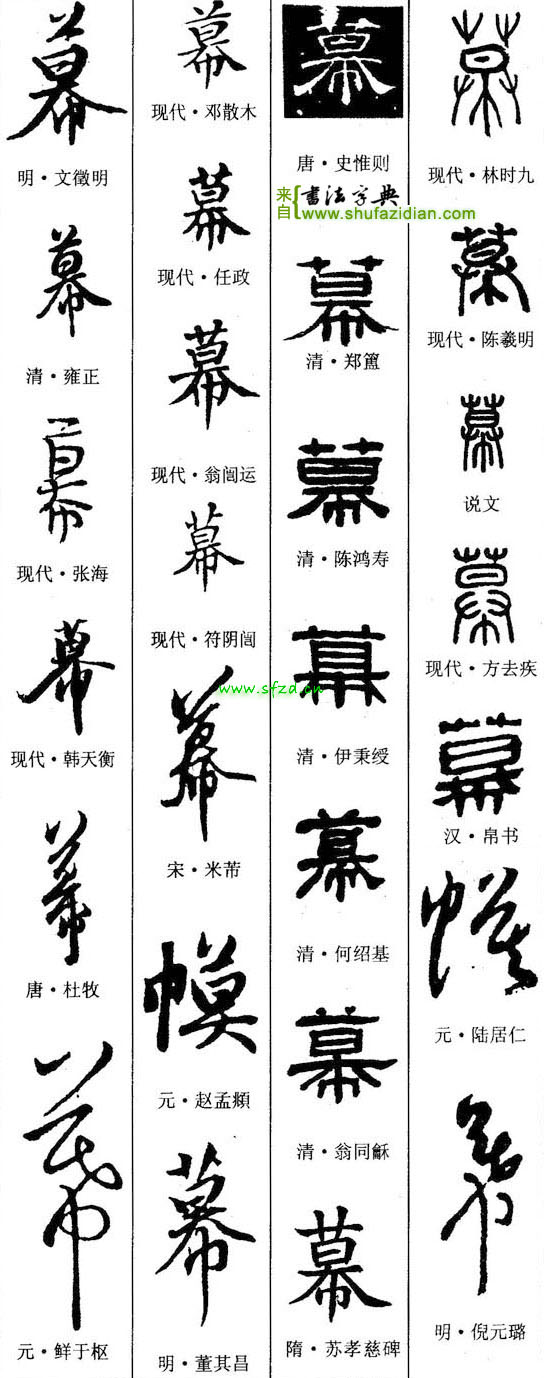 幕
明·文徵明
幕
清·雍正
幕
现代·张海
幕
现代·韩天衡
幕
唐·杜牧
幕
元·鲜于枢
幕
现代·邓散木
幕
现代·任政
幕
现代·翁闿运
幕
现代·符阴闿
www.sfzd.cn
幕
宋·米芾
幙
元·赵孟頫
幕
明·董其昌
幕
唐·史惟则
来自{书法字典
www.shufazidian.com
幕
清·郑簠
幕
清·陈鸿寿
幕
清·伊秉绶
幕
清·何绍基
幕
清·翁同龢
幕
隋·苏孝慈碑
幕
现代·林时九
幕
现代·陈羲明
幕
说文
幕
现代·方去疾
幕
汉·帛书
幙
元·陆居仁
幕
明·倪元璐